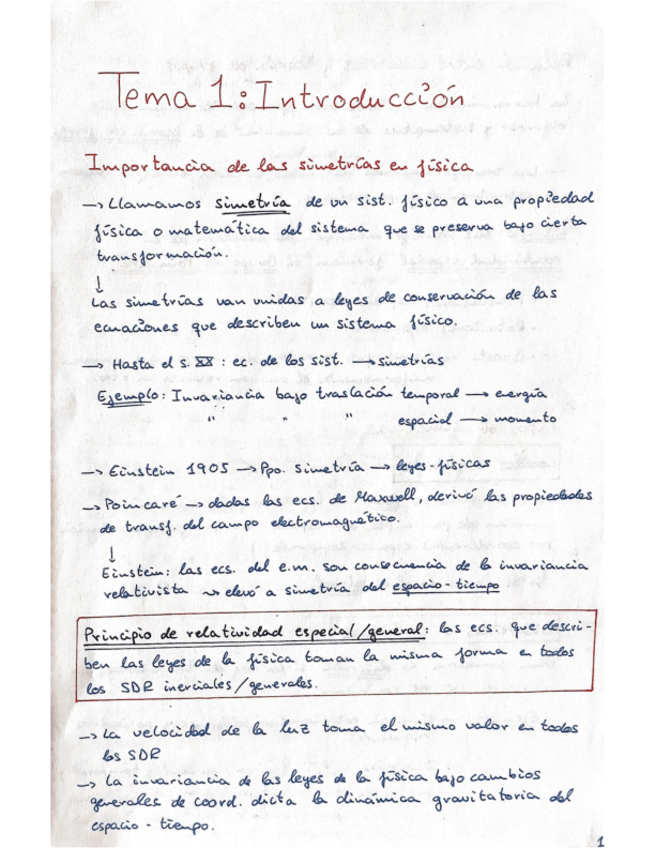 Tema 1: Introducción
Importancia de las simetrías en física
→ Llamamos simetría de un sist. físico a una propiedad
física o matemática del sistema que se preserva bajo cierta
transformación.
↓
Las simetrías van unidas a leyes de conservación de las
ecuaciones que describen un sistema físico.
→ Hasta el s. XX : ec. de los sist. → simetrías
Ejemplo: Invariancia bajo traslación temporal → energía
" " " espacial → momento
→ Einstein 1905 → Ppo. simetría → leyes físicas
→ Poincaré → dadas las ecs. de Maxwell, derivó las propiedades
de transf. del campo electromagnético.
↓
Einstein: las ecs. del e.m. son consecuencia de la invariancia
relativista ⇝ elevó a simetría del espacio-tiempo
Principio de relatividad especial/general: las ecs. que descri-
ben las leyes de la física toman la misma forma en todos
los SDR inerciales/generales.
→ La velocidad de la luz toma el mismo valor en todos
los SDR
→ La invariancia de las leyes de la física bajo cambios
generales de coord. dicta la dinámica gravitatoria del
espacio-tiempo.
1